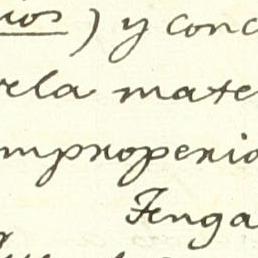 ios) y conc
rla mate
mproperio
Tenga